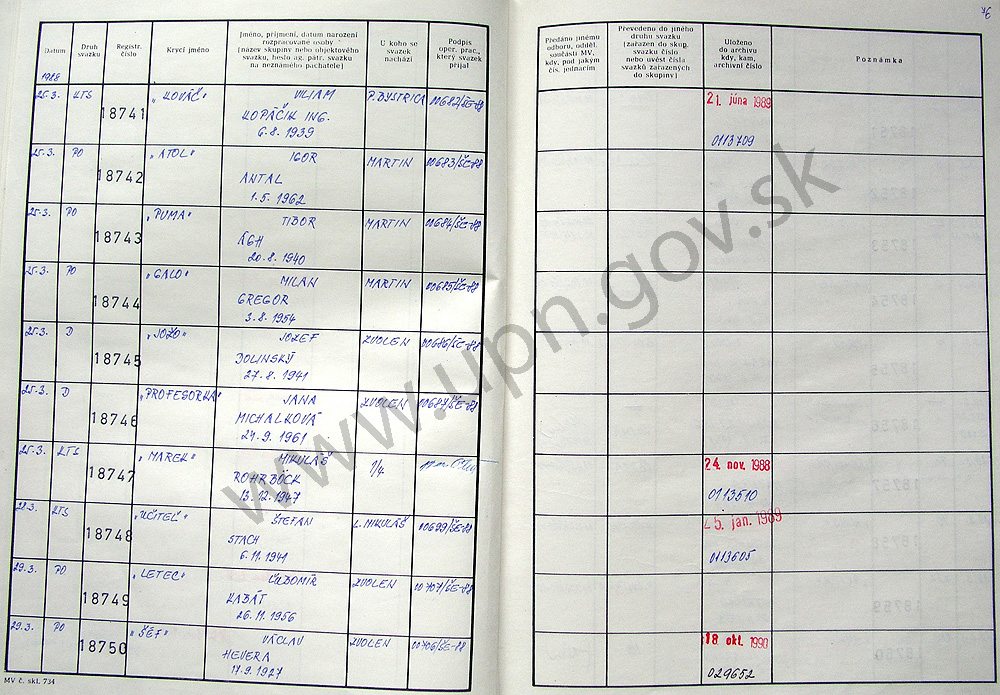 76
Datum
Druh svazku
Registr. číslo
Krycí jméno
Jméno, příjmení, datum narození
rozpracované osoby
(název skupiny nebo objektového
svazku, heslo ag. pátr. svazku
na neznámého pachatele)
U koho se
svazek
nachází
Podpis
oper. prac.,
který svazek
přijal
Předáno jinému
odboru, odděl.
součásti MV,
kdy, pod jakým
čís. jednacím
Převedeno do jiného
druhu svazku
(zařazen do skup.
svazku číslo
nebo uvést čísla
svazků zařazených
do skupiny)
Uloženo
do archivu
kdy, kam,
archivní číslo
Poznámka
1988
25.3. KTS 18741 "KOVÁČ" VILIAM P. BYSTRICA 00682/ŠE-88 21. júna 1989
KOPÁČIK ING.
6.8. 1939 0113709
25.3. PO 18742 "ATOL" IGOR MARTIN 00683/ŠE-88
ANTAL
1.5. 1962
25.3. PO 18743 "PUMA" TIBOR MARTIN 00684/ŠE-88
ÁGH
20.8. 1940
25.3. PO 18744 "GALO" MILAN MARTIN 00685/ŠE-88
GREGOR
3.8. 1954
25.3. D 18745 "JOŽO" JOZEF ZVOLEN 00686/ŠE-88
DOLINSKÝ
27.8. 1941
25.3. D 18746 "PROFESORKA" JANA ZVOLEN 00687/ŠE-88
MICHALKOVÁ
24.9. 1961
25.3. KTS 18747 "MAREK" MIKULÁŠ 1/4 24. nov. 1988
ROHRBÖCK
13.12. 1947 0113510
28.3. KTS 18748 "UČITEĽ" ŠTEFAN L. MIKULÁŠ 00699/ŠE-88 25. jan. 1989
STACH
6.11. 1941 0113605
29.3. PO 18749 "LETEC" ĽUBOMÍR ZVOLEN 00707/ŠE-88
KABÁT
26.11. 1956
29.3. PO 18750 "ŠÉF" VÁCLAV ZVOLEN 00706/ŠE-88 18 okt. 1990
HEVERA
17.9. 1927 029652
MV č. skl. 734
www.upn.gov.sk